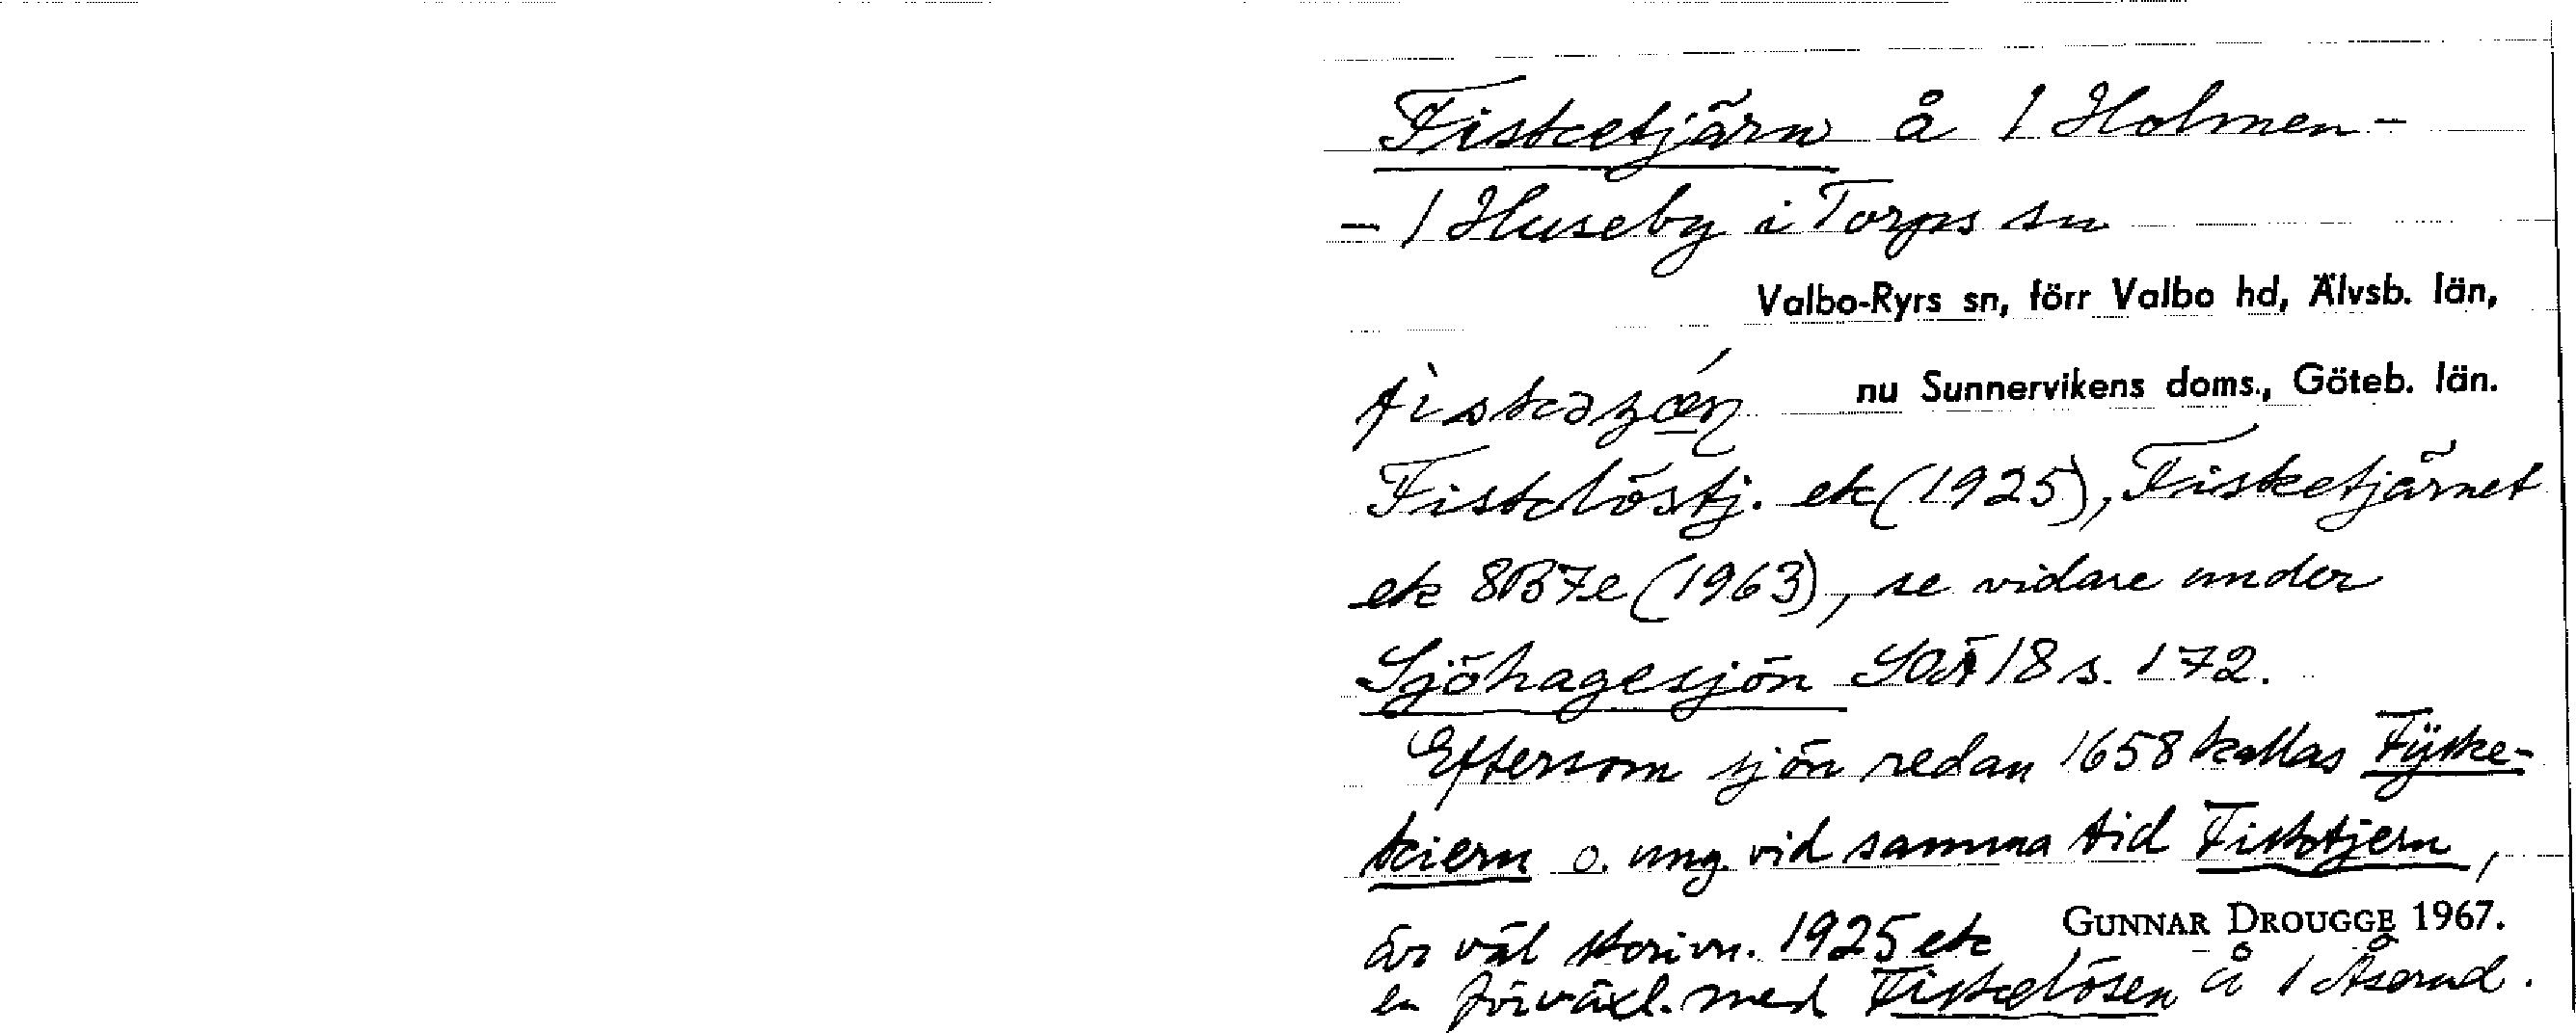 Fisketjärn å 1 Holmen-
- 1 Huseby i Torps sn
Valbo-Ryrs sn, förr Valbo hd, Älvsb. län,
nu Sunnervikens doms., Göteb. län.
Fisklöstj. ek (1925), Fisketjärnet
ek 8B7e (1963), se vidare under
Sjöhagesjön SOÄ 18 s. 172.
Eftersom sjön redan 1658 kallas Fijske-
kiern o. ung. vid samma tid Fisktjern,
är väl skrivn. 1925 ek
GUNNAR DROUGGE 1967.
en förväxl. med Fiskelösen å 1 Åserud.